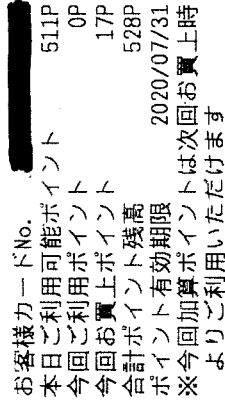 お客様カードNo.
本日ご利用可能ポイント 511P
今回ご利用ポイント 0P
今回お買上ポイント 17P
合計ポイント残高 528P
ポイント有効期限 2020/07/31
※今回加算ポイントは次回お買上時
よりご利用いただけます